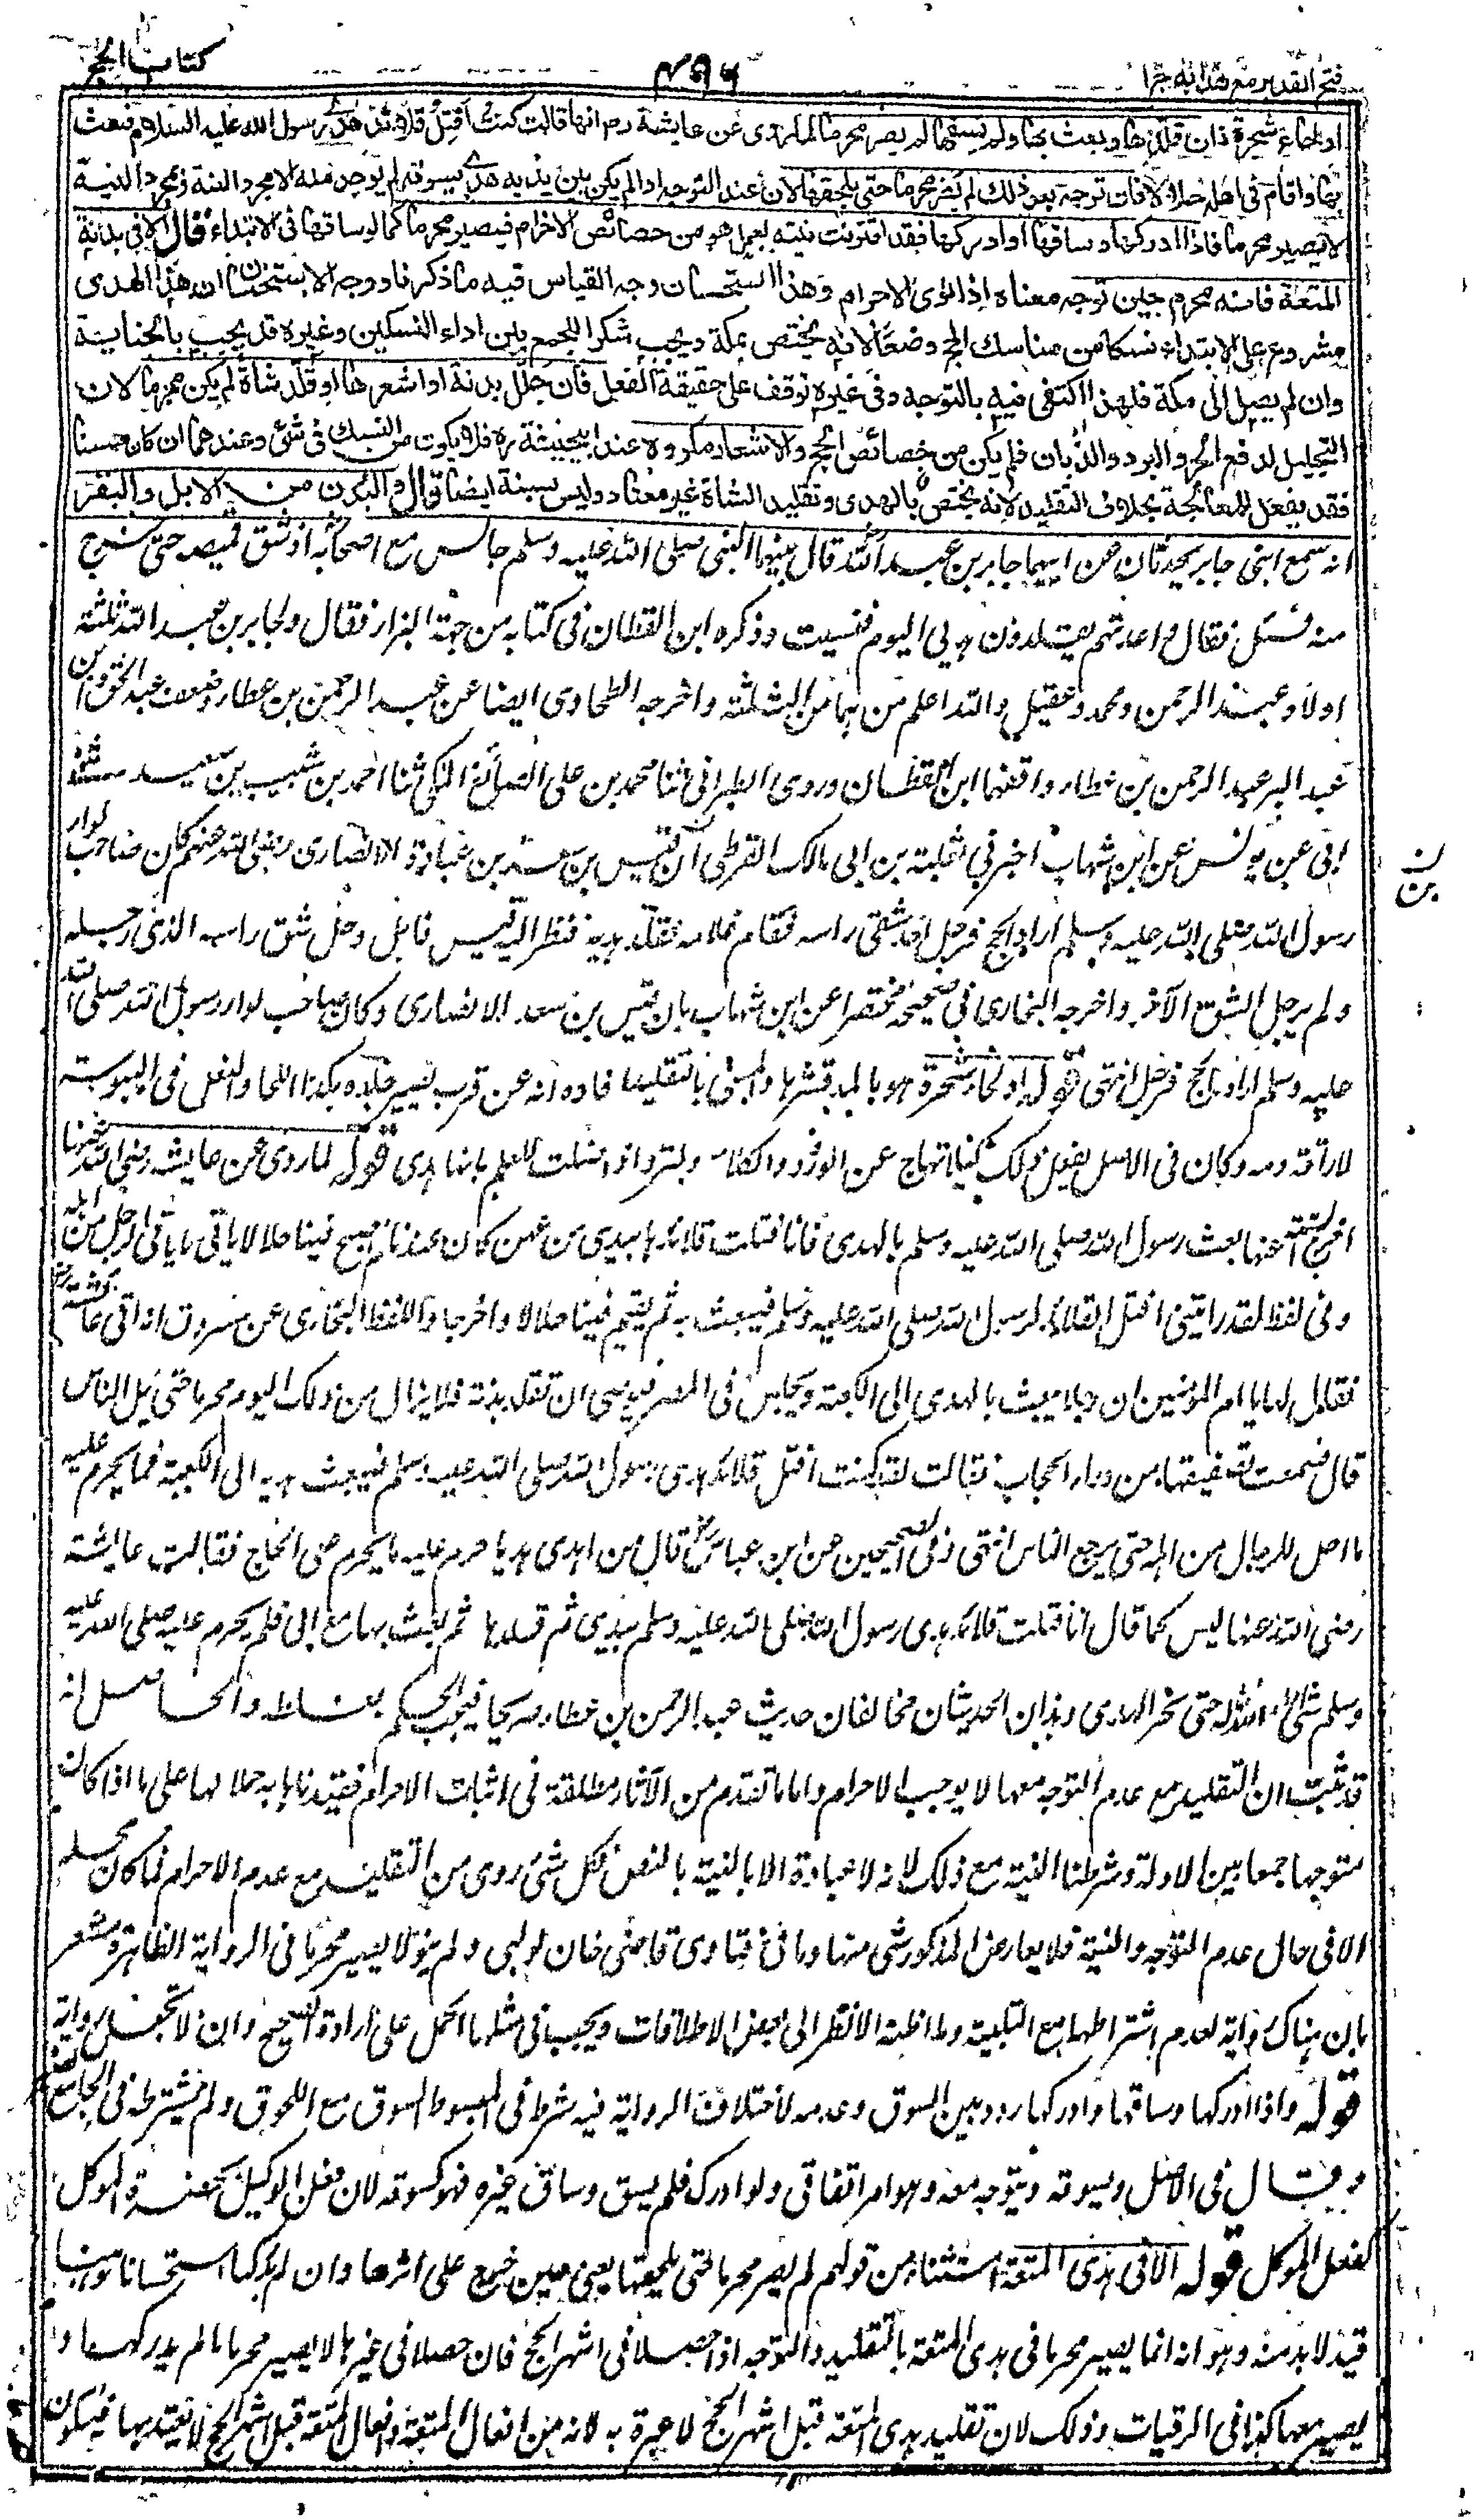 فتح القدير مع هدايه جزا
٤٩٦
كتاب الحج
او لحاء شجرة فان قلدها وبعث بها ولم يسقها لم يصر محرما لما روى عن عايشة رض انها قالت كنت أفتل قلائد هدى رسول الله عليه السلام فبعث
بها واقام فى اهله حلالا فان توجه بعد ذلك لم يصر محرما حتى يلحقها لان عند التوجه اذا لم يكن بين يديه هدى يسوقه لم يوجد منه الا مجرد النية وبمجرد النية
لا يصير محرما فاذا ادركها وساقها او ادركها فقد اقترنت نيته بعمل هو من خصائص الاحرام فيصير محرما كما لو ساقها فى الابتداء قال الا فى بدنة
المتعة فانه محرم حين توجه معناه اذا نوى الاحرام وهذا استحسان وجه القياس فيه ما ذكرنا ووجه الاستحسان ان هذا الهدى
مشروع على الابتداء نسكا من مناسك الحج وضعا لانه يختص بمكة ويجب شكرا للجمع بين اداء النسكين وغيره قد يجب بالجناية
وان لم يصل الى مكة فلهذا اكتفى فيه بالتوجه وفى غيره توقف على حقيقة الفعل فان جلل بدنة او اشعرها او قلد شاة لم يكن محرما لان
التجليل لدفع الحر والبرد والذبان فلم يكن من خصائص الحج والاشعار مكروه عند ابيحنيفة ره فلا يكون من النسك فى شئ وعندهما ان كان حسنا
فقد يفعل للمعالجة بخلاف التقليد لانه يختص بالهدى وتقليد الشاة غير معتاد وليس بسنة ايضا قال والبدن من الابل والبقر
انه سمع ابنى جابر يحدثان عن ابيهما جابر بن عبد الله قال بينما النبى صلى الله عليه وسلم جالس مع اصحابه اذ شق قميصه حتى خرج
منه فسئل فقال واعدتهم يقلدون هديى اليوم فنسيت وذكره ابن القطان فى كتابه من جهة البزار فقال ولجابر بن عبد الله ثلثة
اولاد عبد الرحمن ومحمد وعقيل والله اعلم من هما من الثلثة واخرجه الطحاوى ايضا عن عبد الرحمن بن عطاء وضعف عبد الحق وابن
عبد البر عبد الرحمن بن عطاء ووافقهما ابن القطان وروى الطبرانى ثنا محمد بن على الصائغ المكى ثنا احمد بن شبيب بن سعيد حدثنى
ابى عن يونس عن ابن شهاب اخبرنى ثعلبة بن ابى مالك القرظى ان قيس بن سعد بن عبادة الانصارى رضى الله عنهم كان صاحب لواء
رسول الله صلى الله عليه وسلم اراد الحج فرجل احد شقى راسه فقام غلامه فقلد هديه فنظر اليه قيس فاهل وحل شق راسه الذى رجله
ولم يرجل الشق الآخر واخرجه البخارى فى صحيحه مختصرا عن ابن شهاب بان قيس بن سعد الانصارى وكان صاحب لواء رسول الله صلى الله
عليه وسلم اراد الحج فرجل انتهى قوله او لحاء شجرة هو بالمد قشرها والمعنى بالتقليد افاده انه عن قرب يصير جلده كهذا اللحاء والنعل فى اليبوسة
لاراقة دمه وكان فى الاصل يفعل ذلك كيلا تهاج عن الورود والكلاء ولترد اذا ضلت للعلم بانها هدى قوله لما روى عن عايشة رضى الله عنها
اخرج الستة عنها بعث رسول الله صلى الله عليه وسلم بالهدى فانا فتلت قلائدها بيدى من عهن كان عندنا ثم اصبح فينا حلالا ياتى ما ياتى الرجل من اهله
وفى لفظ لقد رايتنى افتل القلائد لرسول الله صلى الله عليه وسلم فيبعث به ثم يقيم فينا حلالا واخرجا واللفظ للبخارى عن مسروق انه اتى عائشة رض
فقال لها يا ام المؤمنين ان رجلا يبعث بالهدى الى الكعبة ويجلس فى المصر فيوصى ان تقلد بدنته فلا يزال من ذلك اليوم محرما حتى يحل الناس
قال فسمعت تصفيقها من وراء الحجاب فقالت لقد كنت افتل قلائد هدى رسول الله صلى الله عليه وسلم فيبعث هديه الى الكعبة فما يحرم عليه
ما احل للرجال من اهله حتى يرجع الناس انتهى وفى الصحيحين عن ابن عباس رض قال من اهدى هديا حرم عليه ما يحرم على الحاج فقالت عايشة
رضى الله عنها ليس كما قال انا فتلت قلائد هدى رسول الله صلى الله عليه وسلم بيدى ثم قلدها ثم بعث بها مع ابى فلم يحرم عليه صلى الله عليه
وسلم شئ احله الله له حتى نحر الهدى وهذان الحديثان مخالفان حديث عبد الرحمن بن عطاء صريحا فيجب الحكم بغلطه والحاصل انه
قد ثبت ان التقليد مع عدم التوجه معها لا يوجب الاحرام واما ما تقدم من الآثار مطلقة فى اثبات الاحرام فقيدناها به حملا لها على ما اذا كان
متوجها جمعا بين الادلة وشرطنا النية مع ذلك لانه لا عبادة الا بالنية بالنص فكل شئ روى من التقليد مع عدم الاحرام فما كان محله
الا فى حال عدم التوجه والنية فلا يعارض المذكور شئ منها وما فى فتاوى قاضى خان لو لبى ولم ينو لا يصير محرما فى الرواية الظاهرة مشعر
بان هناك رواية بعدم اشتراطها مع التلبية وما اظنه الا نظر الى بعض الاطلاقات ويجب فى مثلها الحمل على ارادة الصحيح وان لا تجعل رواية
قوله واذا ادركها وساقها وادركها ردد بين السوق وعدمه لاختلاف الرواية فيه شرط فى المبسوط السوق مع اللحوق ولم يشترطه فى الجامع الصغير
وقال فى الاصل ويسوقه ويتوجه معه وهو امر اتفاقى ولو ادرك فلم يسق وساق غيره فهو كسوقه لان فعل الوكيل بحضرة الموكل
كفعل الموكل قوله الا فى هدى المتعة استثناء من قولهم لم يصر محرما حتى يلحقها يعنى حين خرج على اثرها وان لم يدركها استحسانا وههنا
قيد لا بد منه وهو انه انما يصير محرما فى هدى المتعة بالتقليد والتوجه اذا حصلا فى اشهر الحج فان حصلا فى غيرها لا يصير محرما ما لم يدركها و
يصير معها كذا فى الرقيات وذلك لان تقليد هدى المتعة قبل اشهر الحج لا عبرة به لانه من افعال المتعة وافعال المتعة قبل اشهر الحج لا يعتد بها فيكون